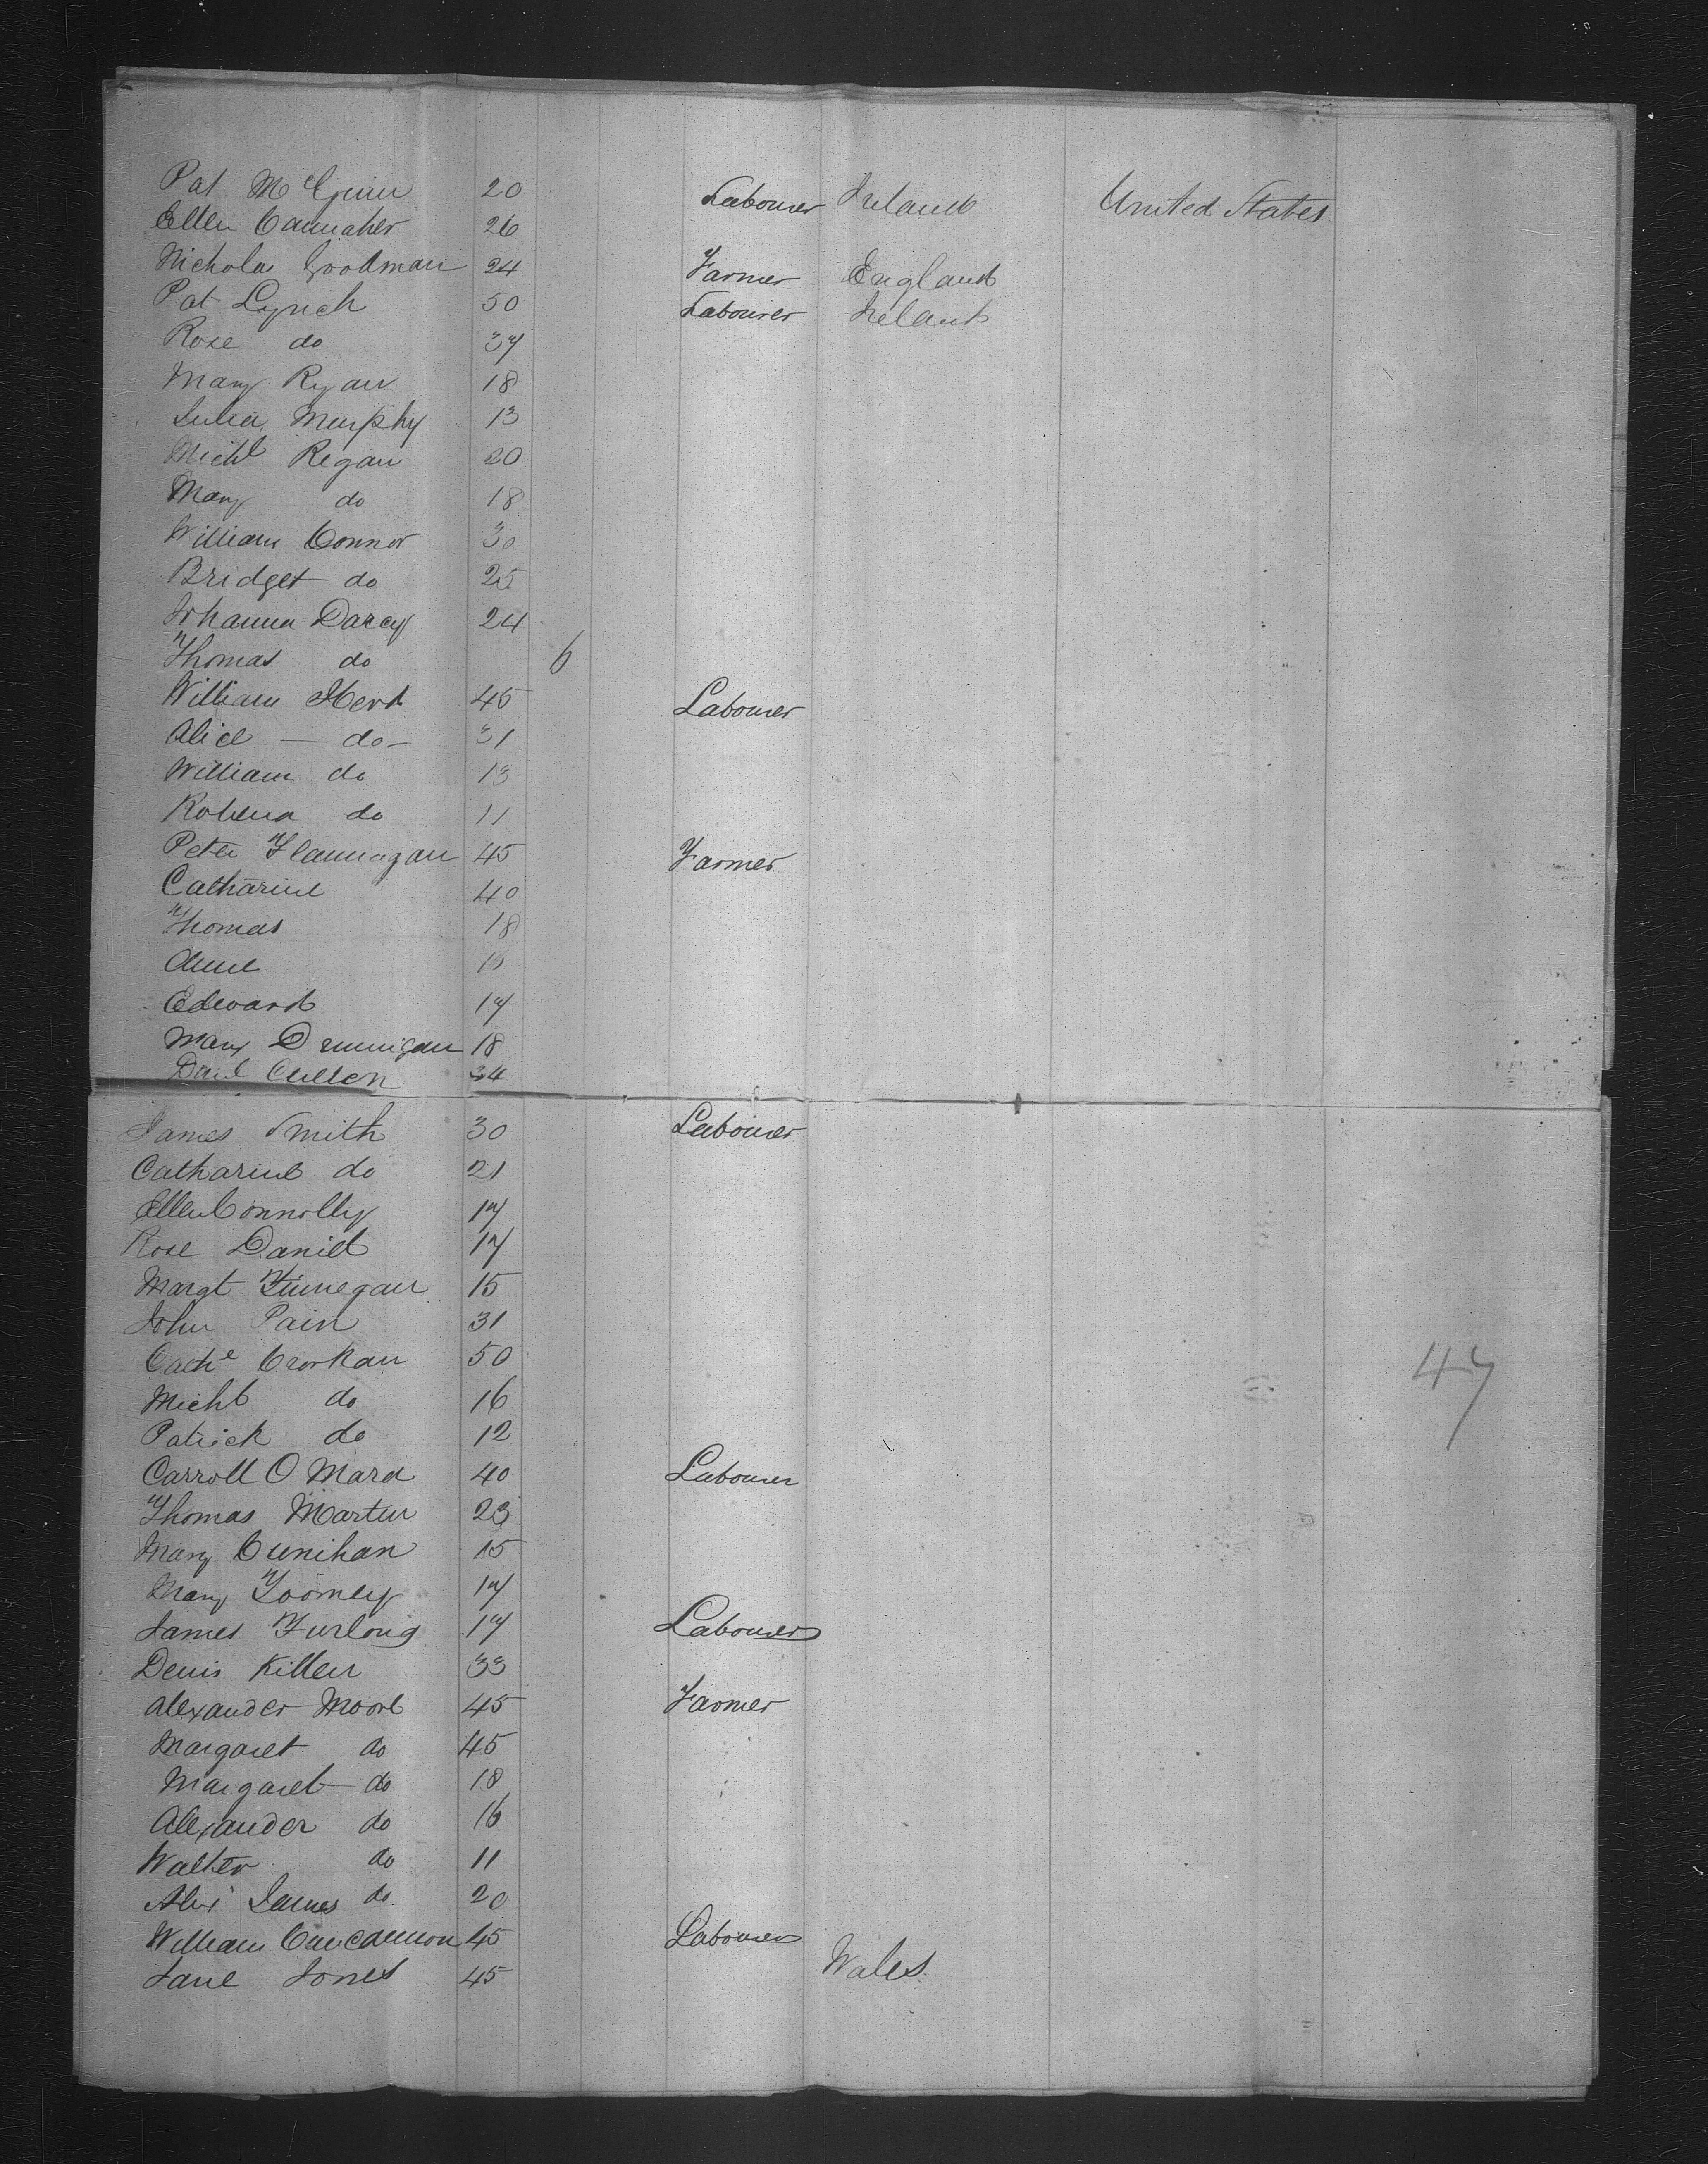 Pat McGinn 20 Labourer Ireland United States
Ellen Cannaher 26
Nicholas Goodman 24 Farmer England
Pat Lynch 50 Labourer Ireland
Rose do 37
Mary Ryan 18
Julia Murphy 13
Michl Regan 20
Mary do 18
William Connor 30
Bridget do 25
Johanna Darcy 24
Thomas do 6
William 45 Labourer
Alice — do — 31
William do 13
Robena do 11
Peter Flannagan 45 Farmer
Catharine 40
Thomas 18
Anne
Edward 17
Mary Drumigan 18
Danl Cullen 34
James Smith 30 Labourer
Catharine do 21
Ellen Connolly 17
Rose Daniel 17
Margt Finnegan 15
John Pain 31
Cathe Crorkan 50
Michl do 16
Patrick do 12
47
Carroll O Mara 40 Labourer
Thomas Martin 23
Mary Cunihan 15
Mary Toomey 17
James Furlong 17 Labourer
Denis Killen 33
Alexander Moore 45 Farmer
Margaret do 45
Margaret do 18
Alexander do 16
Walter do 11
James do 20
William Cuncannon 45 Labourer
Jane Jones 45 Wales